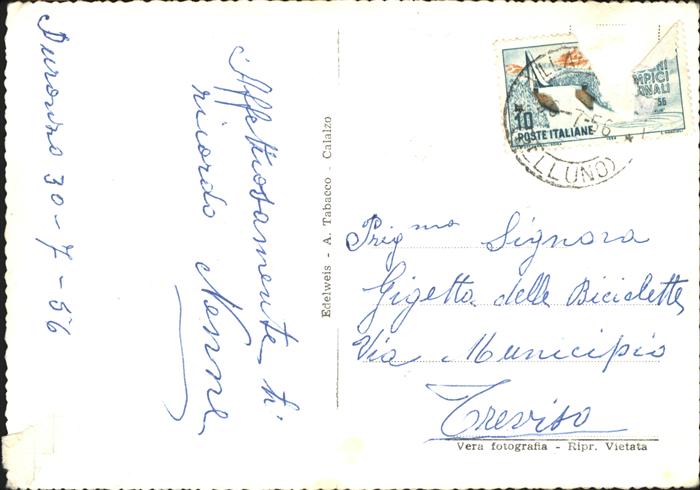 Auronzo 30-7-56
Affettuosamente ti
ricordo Nonna
Edelweis - A. Tabacco - Calalzo
10
POSTE ITALIANE
56
7-56
LLUNO)
Prigma Signora
Gigetta delle Biciclette
Via Municipio
Treviso
Vera fotografia - Ripr. Vietata